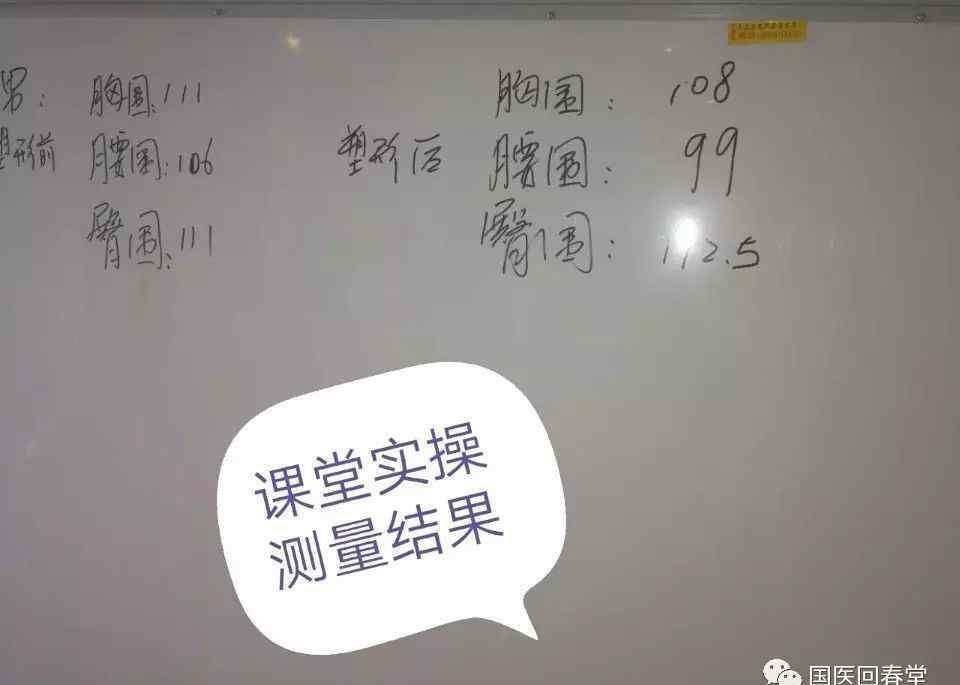 男: 胸围:111
塑形前 腰围:106
臀围:111
塑形后
胸围: 108
腰围: 99
臀围: 112.5
课堂实操
测量结果
国医回春堂